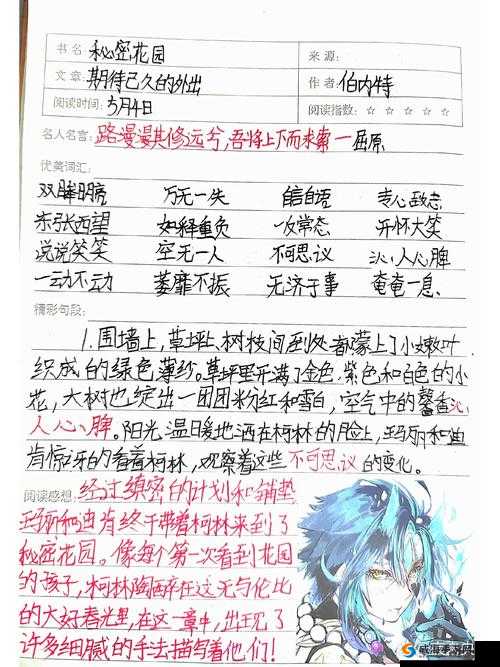 书名 秘密花园 来源:
文章: 期待已久的外出 作者: 伯内特
阅读时间: 5月4日 阅读指数: ☆ ☆ ☆ ☆ ☆
名人名言: 路漫漫其修远兮,吾将上下而求索一屈原
优美词汇:
双眸明亮 万无一失 自言自语 专心致志
东张西望 如释重负 一反常态 开怀大笑
说说笑笑 空无一人 不可思议 沁人心脾
一动不动 萎靡不振 无济于事 奄奄一息
精彩句段:
1.围墙上,草坪上、树枝间到处都蒙上了小嫩叶
织成的绿色薄纱。草坪里开满了金色、紫色和白色的小
花,大树也绽出一团团粉红和雪白,空气中的馨香沁
人心脾。阳光温暖地洒在柯林的脸上,玛丽和迪
肯惊讶的看着柯林,观察着这些不可思议的变化。
阅读感想: 经过缜密的计划和铺垫
玛丽和迪肯终于带着柯林来到了
秘密花园。像每个第一次看到花园
的孩子,柯林陶醉在这无与伦比
的大好春光里,在这一章中,出现了
许多细腻的手法描写着他们!